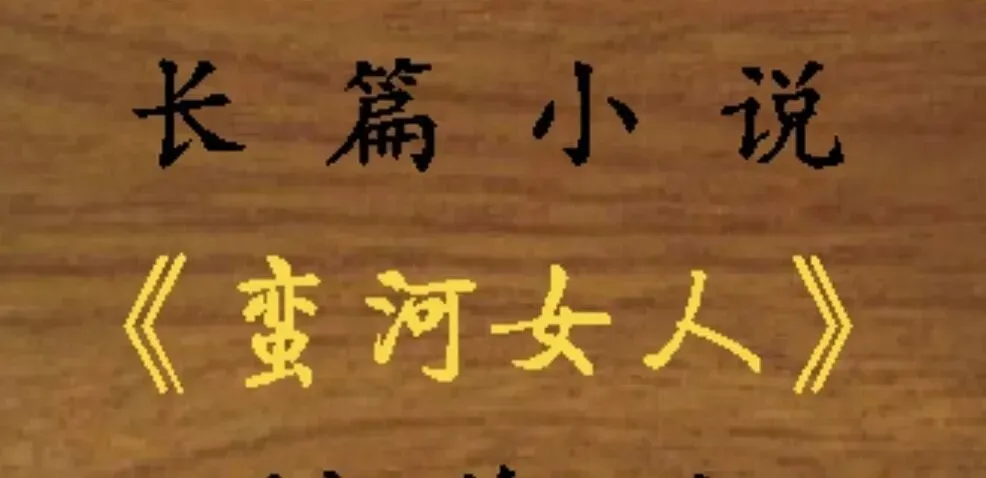 长篇小说
《蛮河女人》